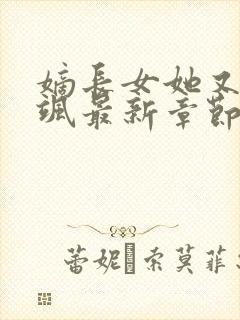 嫡长女她又
飒最新章節
蕾妮·索莫菲